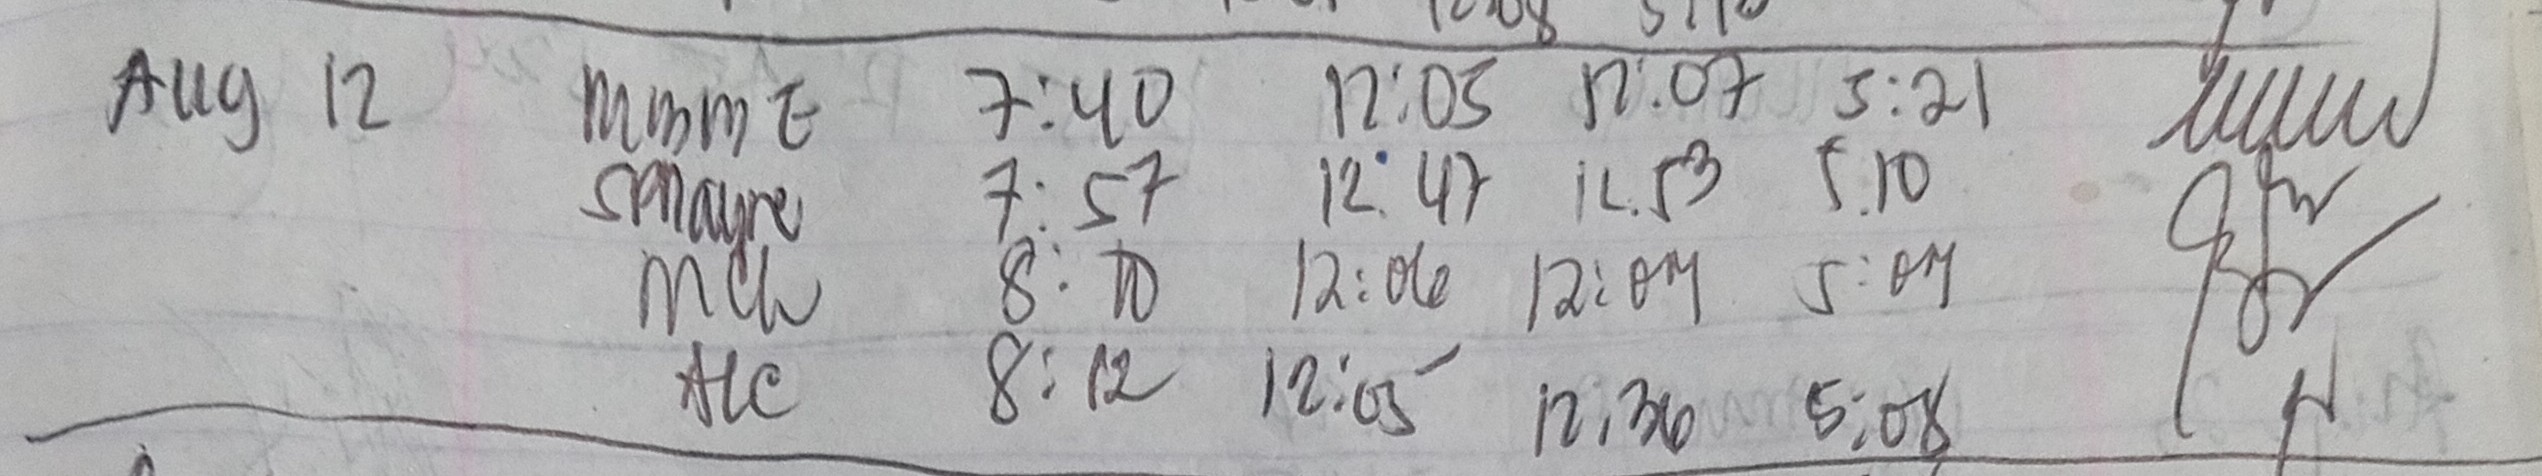 Aug 12 MMME 7:40 12:05 12:07 5:21
SMayre 7:57 12:47 12.53 5.10
MCh 8:10 12:06 12:07 5:07
ALC 8:12 12:05 12:36 5:08